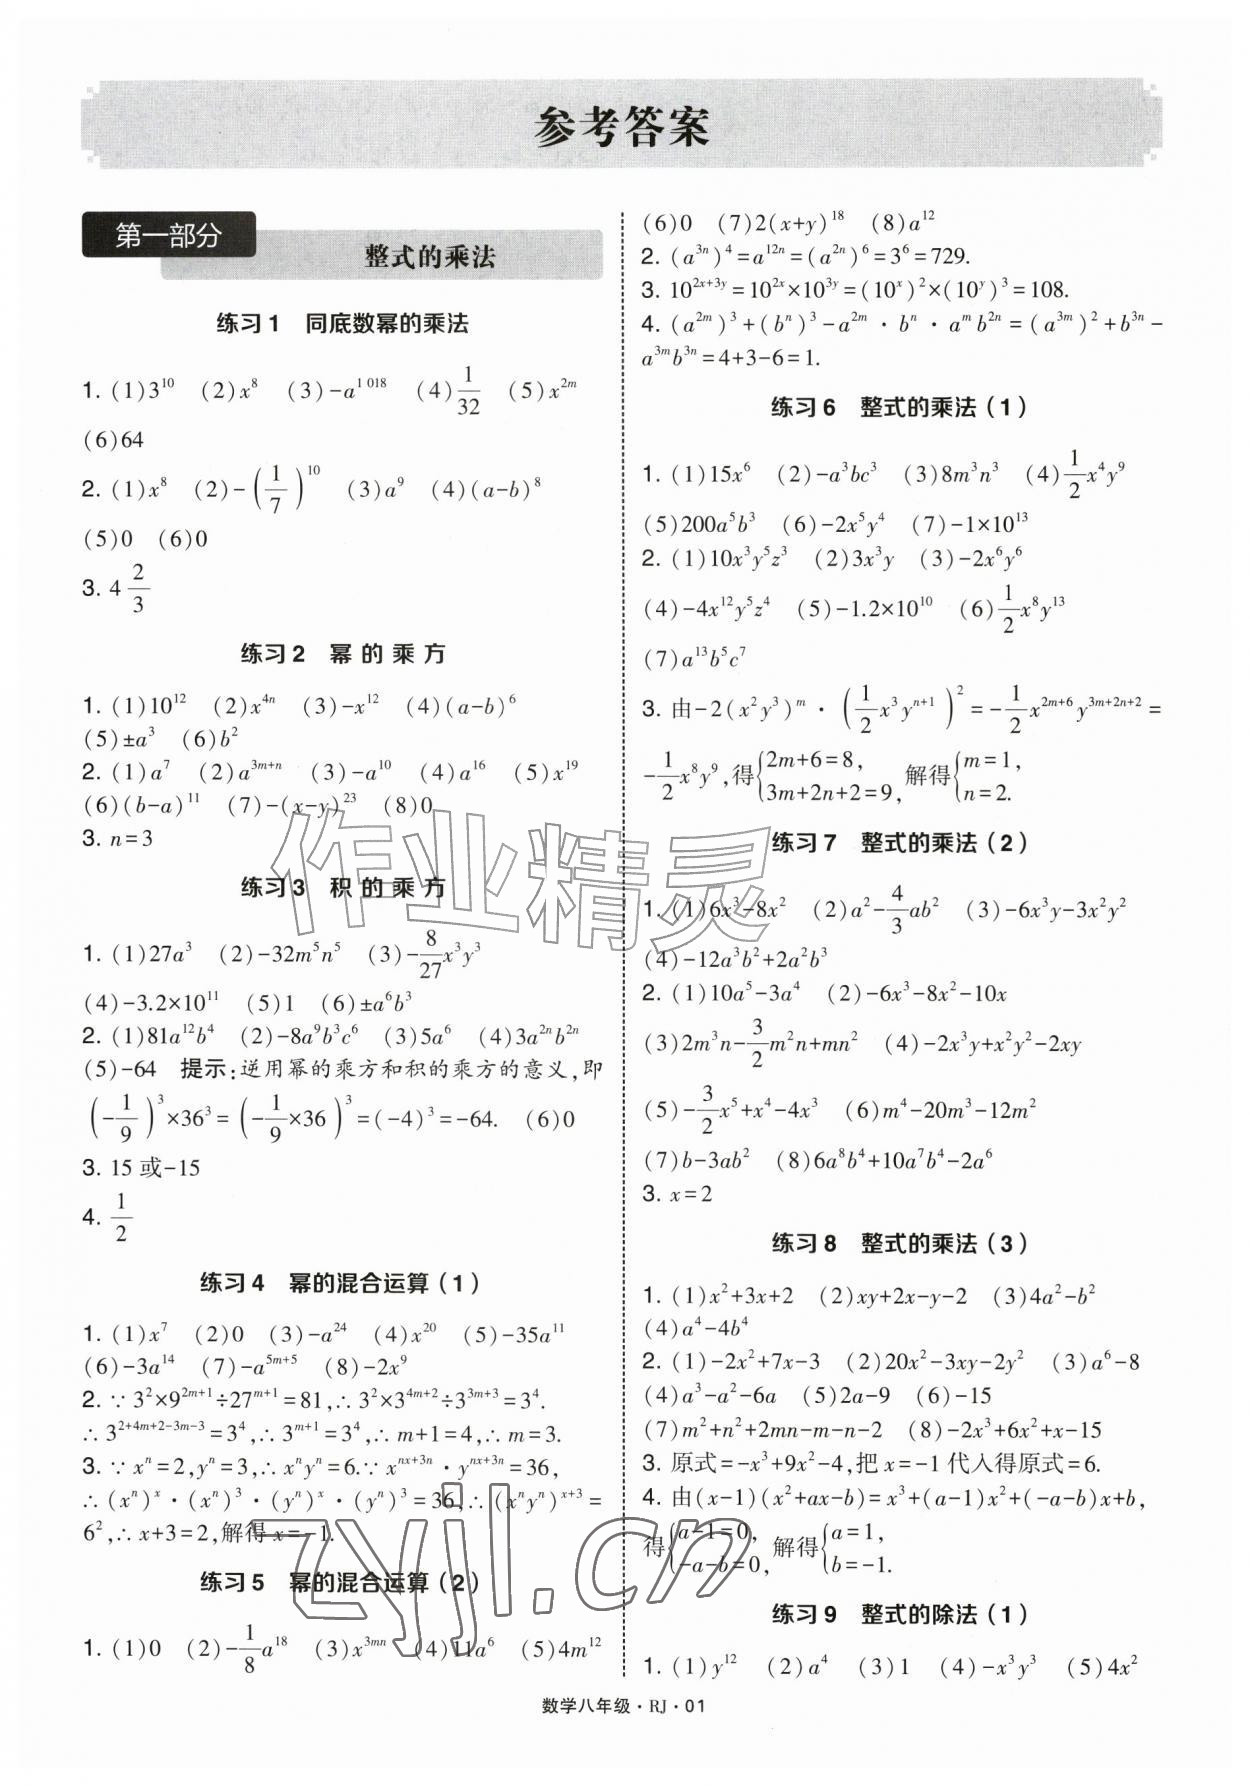 参考答案
第一部分
整式的乘法
练习1 同底数幂的乘法
1. (1)3^{10} (2)x^8 (3)-a^{1 018} (4)\frac{1}{32} (5)x^{2m}
(6)64
2. (1)x^8 (2)-(\frac{1}{7})^{10} (3)a^9 (4)(a-b)^8
(5)0 (6)0
3. 4\frac{2}{3}
练习2 幂的乘方
1. (1)10^{12} (2)x^{4n} (3)-x^{12} (4)(a-b)^6
(5)±a^3 (6)b^2
2. (1)a^7 (2)a^{3m+n} (3)-a^{10} (4)a^{16} (5)x^{19}
(6)(b-a)^{11} (7)-(x-y)^{23} (8)0
3. n=3
练习3 积的乘方
1. (1)27a^3 (2)-32m^5n^5 (3)-\frac{8}{27}x^3y^3
(4)-3.2×10^{11} (5)1 (6)±a^6b^3
2. (1)81a^{12}b^4 (2)-8a^9b^3c^6 (3)5a^6 (4)3a^{2n}b^{2n}
(5)-64 提示:逆用幂的乘方和积的乘方的意义,即
(-\frac{1}{9})^3×36^3=(-\frac{1}{9}×36)^3=(-4)^3=-64. (6)0
3. 15或-15
4. \frac{1}{2}
练习4 幂的混合运算(1)
1. (1)x^7 (2)0 (3)-a^{24} (4)x^{20} (5)-35a^{11}
(6)-3a^{14} (7)-a^{5m+5} (8)-2x^9
2. ∵3^2×9^{2m+1}÷27^{m+1}=81,∴3^2×3^{4m+2}÷3^{3m+3}=3^4.
∴3^{2+4m+2-3m-3}=3^4,∴3^{m+1}=3^4,∴m+1=4,∴m=3.
3. ∵x^n=2,y^n=3,∴x^ny^n=6.∵x^{nx+3n}·y^{nx+3n}=36,
∴(x^n)^x·(x^n)^3·(y^n)^x·(y^n)^3=36,∴(x^ny^n)^{x+3}=
6^2,∴x+3=2,解得x=-1.
练习5 幂的混合运算(2)
1. (1)0 (2)-\frac{1}{8}a^{18} (3)x^{3mn} (4)11a^6 (5)4m^{12}
(6)0 (7)2(x+y)^{18} (8)a^{12}
2. (a^{3n})^4=a^{12n}=(a^{2n})^6=3^6=729.
3. 10^{2x+3y}=10^{2x}×10^{3y}=(10^x)^2×(10^y)^3=108.
4. (a^{2m})^3+(b^n)^3-a^{2m}·b^n·a^mb^{2n}=(a^{3m})^2+b^{3n}-
a^{3m}b^{3n}=4+3-6=1.
练习6 整式的乘法(1)
1. (1)15x^6 (2)-a^3bc^3 (3)8m^3n^3 (4)\frac{1}{2}x^4y^9
(5)200a^5b^3 (6)-2x^5y^4 (7)-1×10^{13}
2. (1)10x^3y^5z^3 (2)3x^3y (3)-2x^6y^6
(4)-4x^{12}y^5z^4 (5)-1.2×10^{10} (6)\frac{1}{2}x^8y^{13}
(7)a^{13}b^5c^7
3. 由-2(x^2y^3)^m·(\frac{1}{2}x^3y^{n+1})^2=-\frac{1}{2}x^{2m+6}y^{3m+2n+2}=
-\frac{1}{2}x^8y^9,得{2m+6=8, 3m+2n+2=9, 解得{m=1, n=2.
练习7 整式的乘法(2)
1. (1)6x^3-8x^2 (2)a^2-\frac{4}{3}ab^2 (3)-6x^3y-3x^2y^2
(4)-12a^3b^2+2a^2b^3
2. (1)10a^5-3a^4 (2)-6x^3-8x^2-10x
(3)2m^3n-\frac{3}{2}m^2n+mn^2 (4)-2x^3y+x^2y^2-2xy
(5)-\frac{3}{2}x^5+x^4-4x^3 (6)m^4-20m^3-12m^2
(7)b-3ab^2 (8)6a^8b^4+10a^7b^4-2a^6
3. x=2
练习8 整式的乘法(3)
1. (1)x^2+3x+2 (2)xy+2x-y-2 (3)4a^2-b^2
(4)a^4-4b^4
2. (1)-2x^2+7x-3 (2)20x^2-3xy-2y^2 (3)a^6-8
(4)a^3-a^2-6a (5)2a-9 (6)-15
(7)m^2+n^2+2mn-m-n-2 (8)-2x^3+6x^2+x-15
3. 原式=-x^3+9x^2-4,把x=-1代入得原式=6.
4. 由(x-1)(x^2+ax-b)=x^3+(a-1)x^2+(-a-b)x+b,
得{a-1=0, -a-b=0, 解得{a=1, b=-1.
练习9 整式的除法(1)
1. (1)y^{12} (2)a^4 (3)1 (4)-x^3y^3 (5)4x^2
数学八年级·RJ·01
作业精灵
zyjl.cn